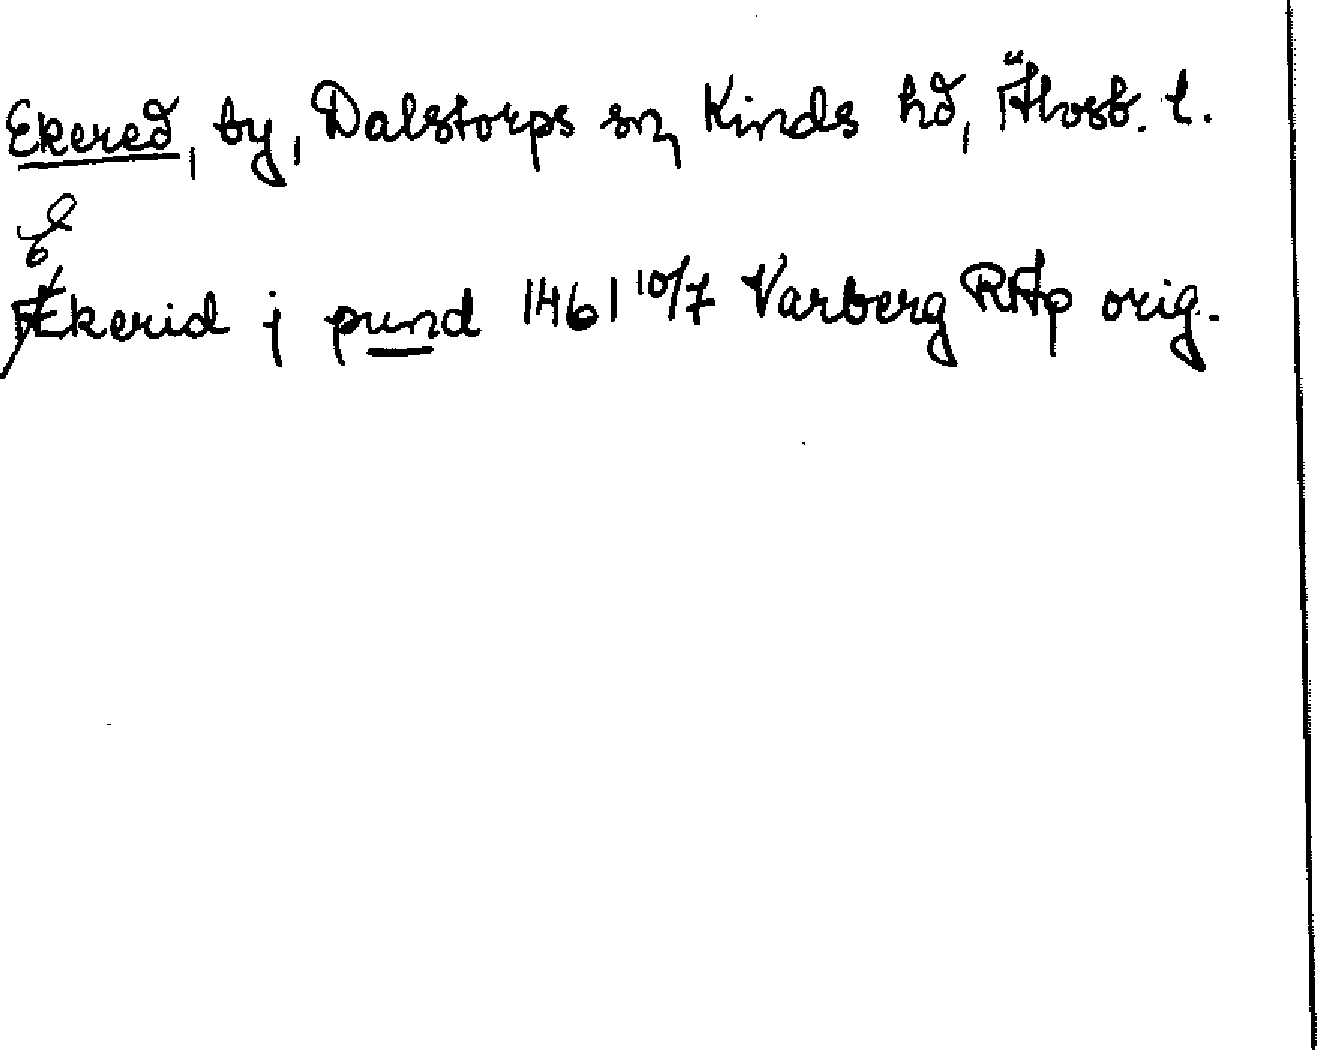 Ekered, by, Dalstorps sn, Kinds hd, Älvsb. l.
Ekerid j pund 1461 10/7 Varberg RAp orig.